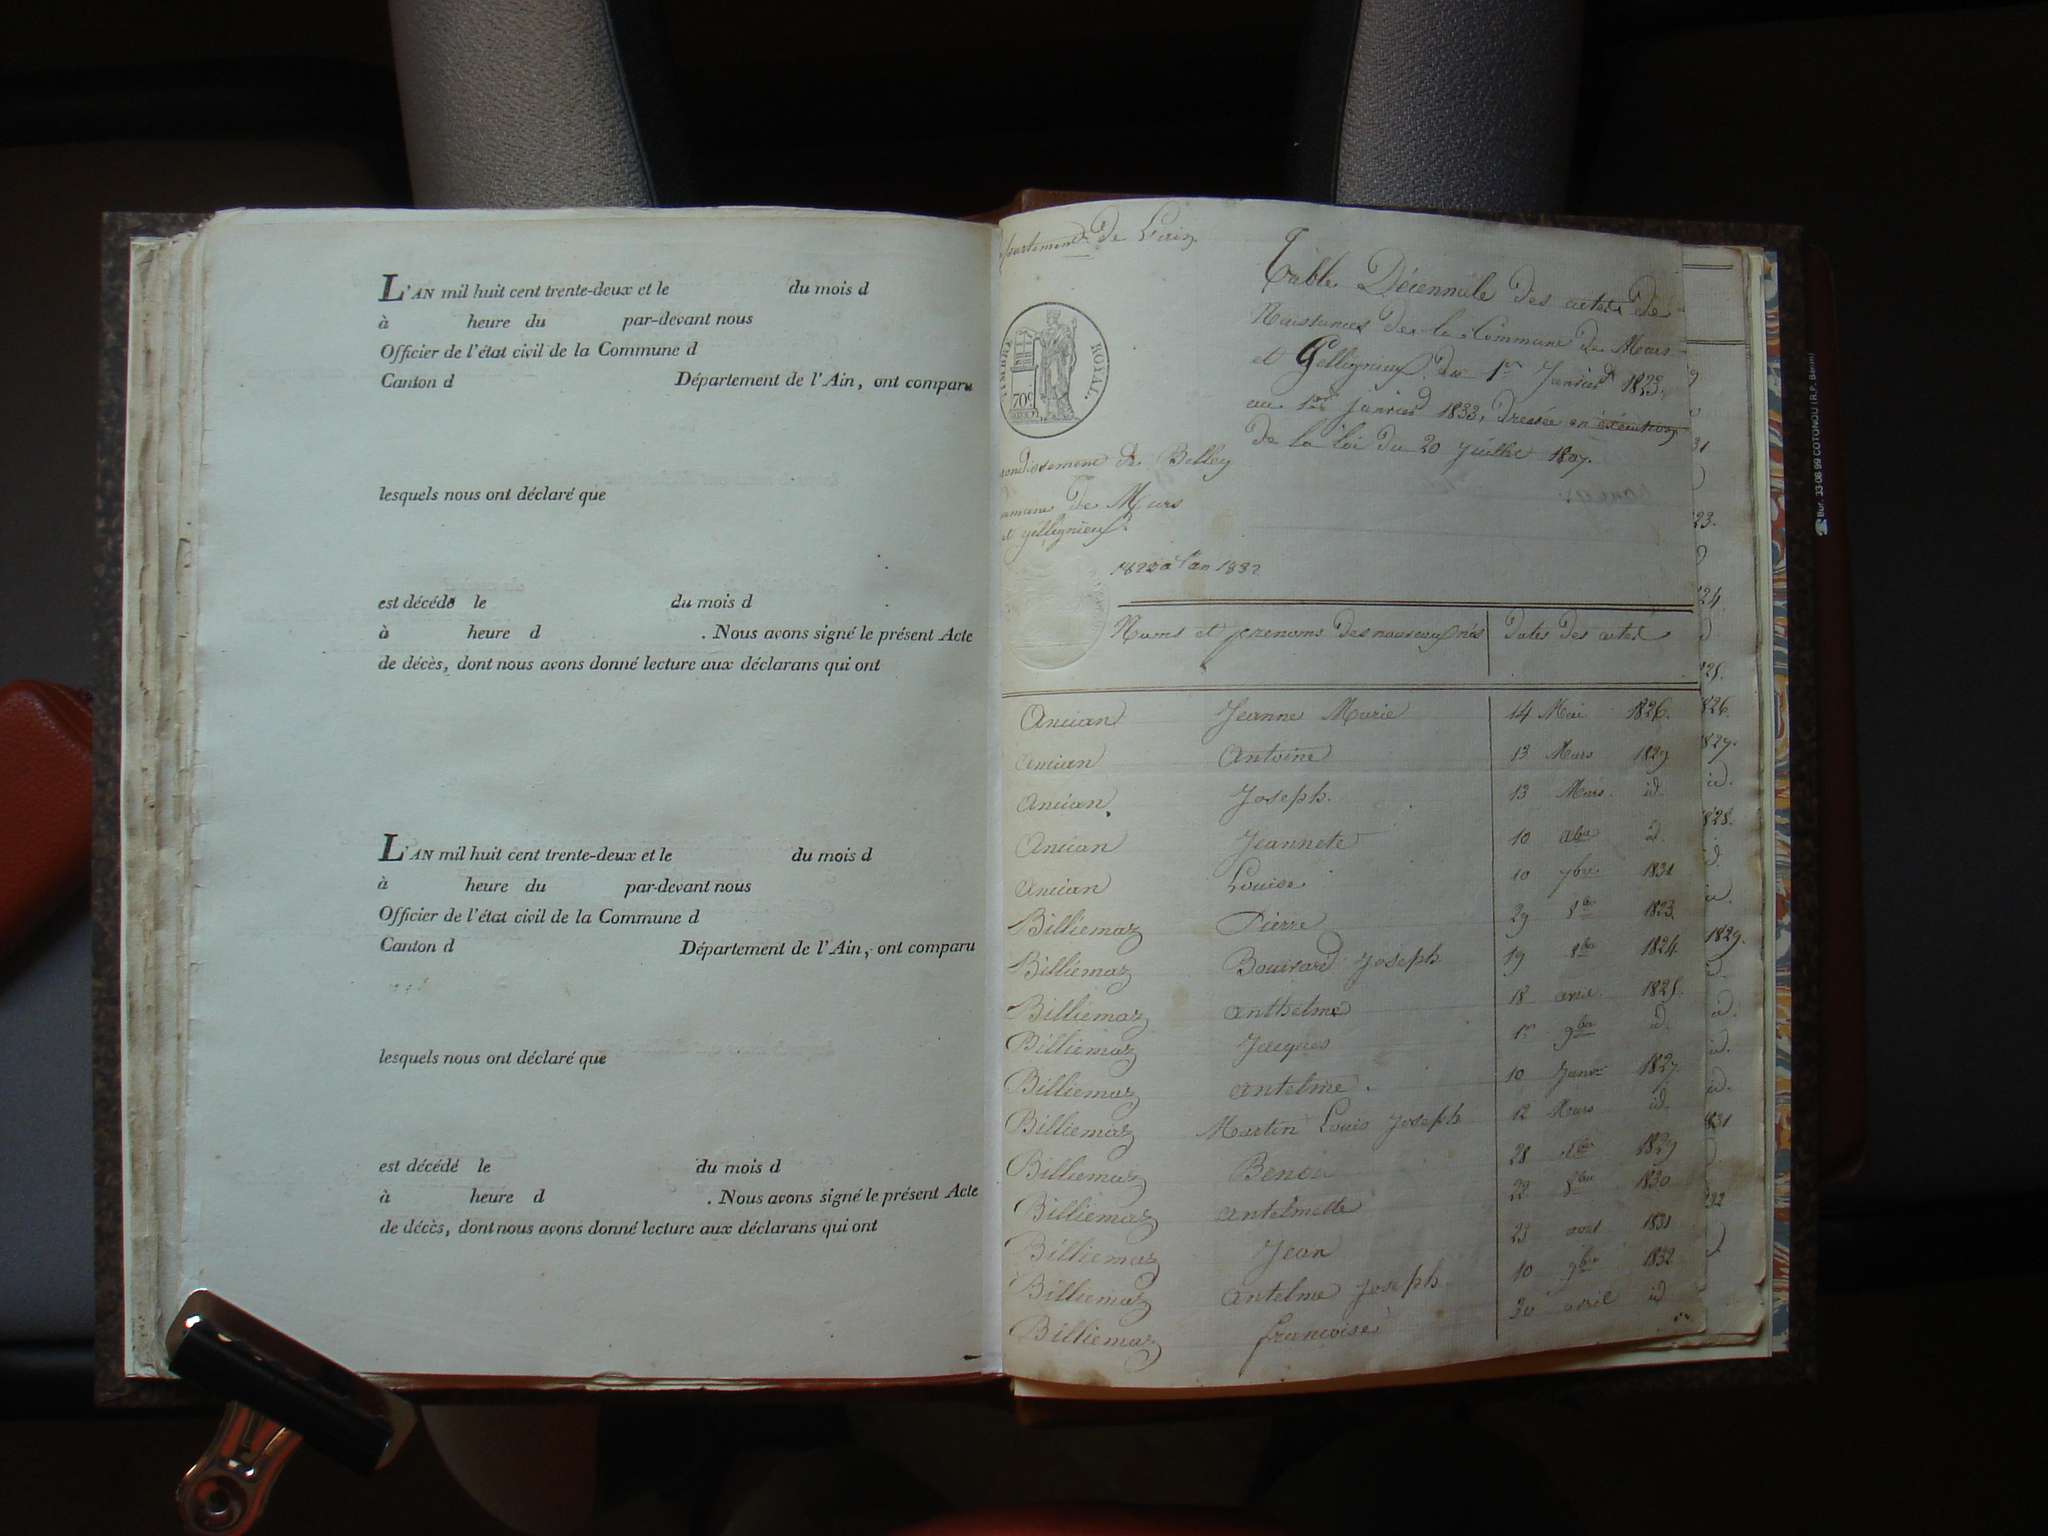 L'AN mil huit cent trente-deux et le du mois d
à heure du par-devant nous
Officier de l'état civil de la Commune d
Canton d Département de l'Ain, ont comparu
lesquels nous ont déclaré que
est décédé le du mois d
à heure d . Nous avons signé le présent Acte
de décès, dont nous avons donné lecture aux déclarans qui ont
L'AN mil huit cent trente-deux et le du mois d
à heure du par-devant nous
Officier de l'état civil de la Commune d
Canton d Département de l'Ain, ont comparu
lesquels nous ont déclaré que
est décédé le du mois d
à heure d . Nous avons signé le présent Acte
de décès, dont nous avons donné lecture aux déclarans qui ont
partement de L'ain
TIMBRE ROYAL
70c
ondissement de Belley
mune de Murs
et gellignieux
Table Décennale des actes de
Naissances de la Commune de Murs
et Gellignieux du 1er Janvier 1823
au 1er janvier 1833, dressée en exécution
de la loi du 20 juillet 1807.
1823 a l'an 1832
Noms et prenoms des nouveaux nés Dates des actes
Ancian Jeanne Marie 14 Mai 1826.
Ancian Antoine 13 Mars 1829
Ancian Joseph. 13 Mars. id.
Ancian Jeannete 10 id.
Ancian Louise 10 7bre 1831
Billiemaz Pierre 29 1823.
Billiemaz Bouvard Joseph 19 8bre 1824
Billiemaz Anthelme 18 avril 1825.
Billiemaz Jacques 1er 9bre id.
Billiemaz antelme. 10 Janvr 1827.
Billiemaz Martin Louis Joseph 12 Mars id.
Billiemaz Benoit 28 1829
Billiemaz antelmette 22 8bre 1830
Billiemaz Jean 23 avril 1831
Billiemaz Antelme Joseph 10 9bre 1832
Billiemaz francoise 20 avril id